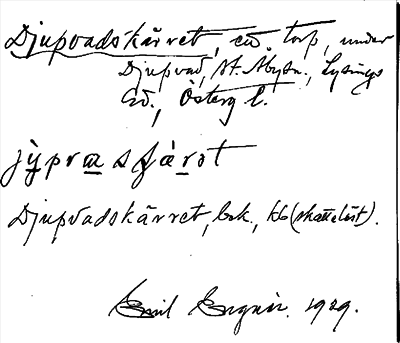 Djupvadskärret, ed. torp, under
Djupvad, St. Åby sn., Lysings
hd., Österg l.
jy̱pra̱sɟà̱rət
Djupvadskärret, bok., kb (skattelist).
Emil Engnér. 1929.